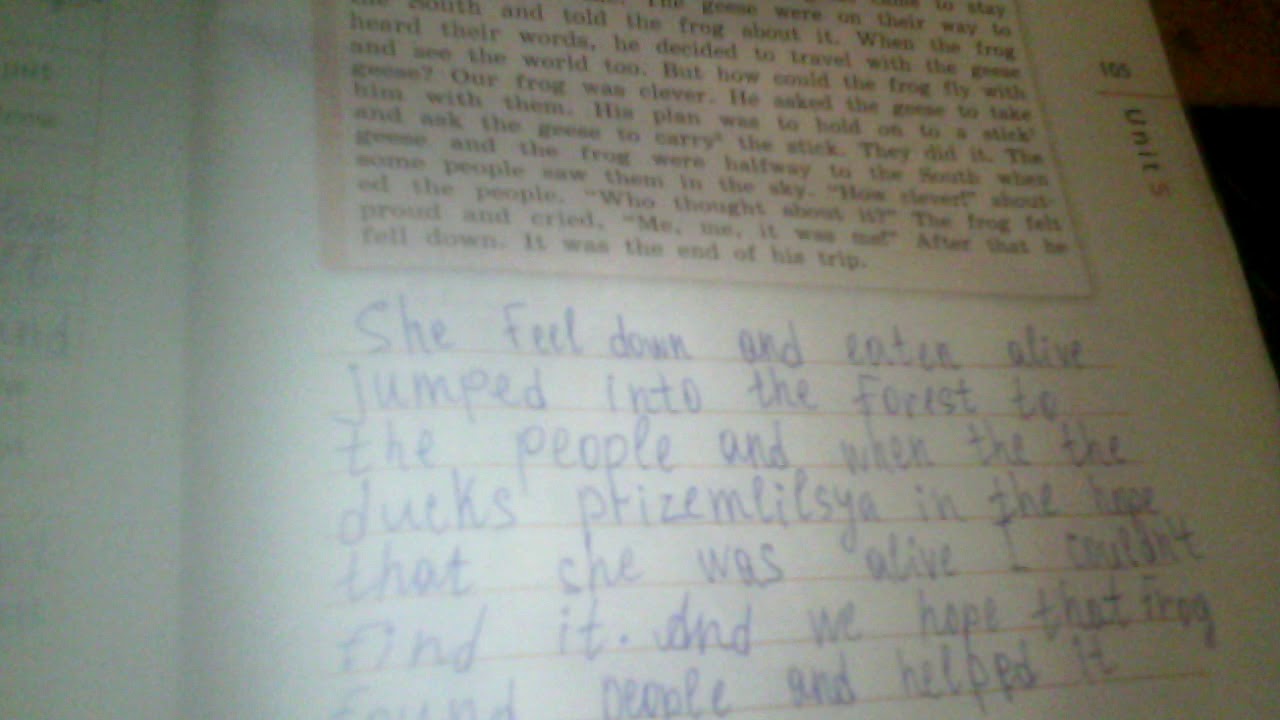 to stay
The geese were on their way to
the South and told the frog about it. When the frog
heard their words, he decided to travel with the geese
and see the world too. But how could the frog fly with
geese? Our frog was clever. He asked the geese to take
him with them. His plan was to hold on to a stick
and ask the geese to carry the stick. They did it. The
geese and the frog were halfway to the South when
some people saw them in the sky. "How clever!" shout-
ed the people. "Who thought about it?" The frog felt
proud and cried, "Me, me, it was me!" After that he
fell down. It was the end of his trip.
105
Unit 5
She Feel down and eaten alive
jumped into the Forest to
the people and when the the
ducks prizemlilsya in the hope
that she was alive I couldn't
find it. And we hope that Frog
found people and helped it